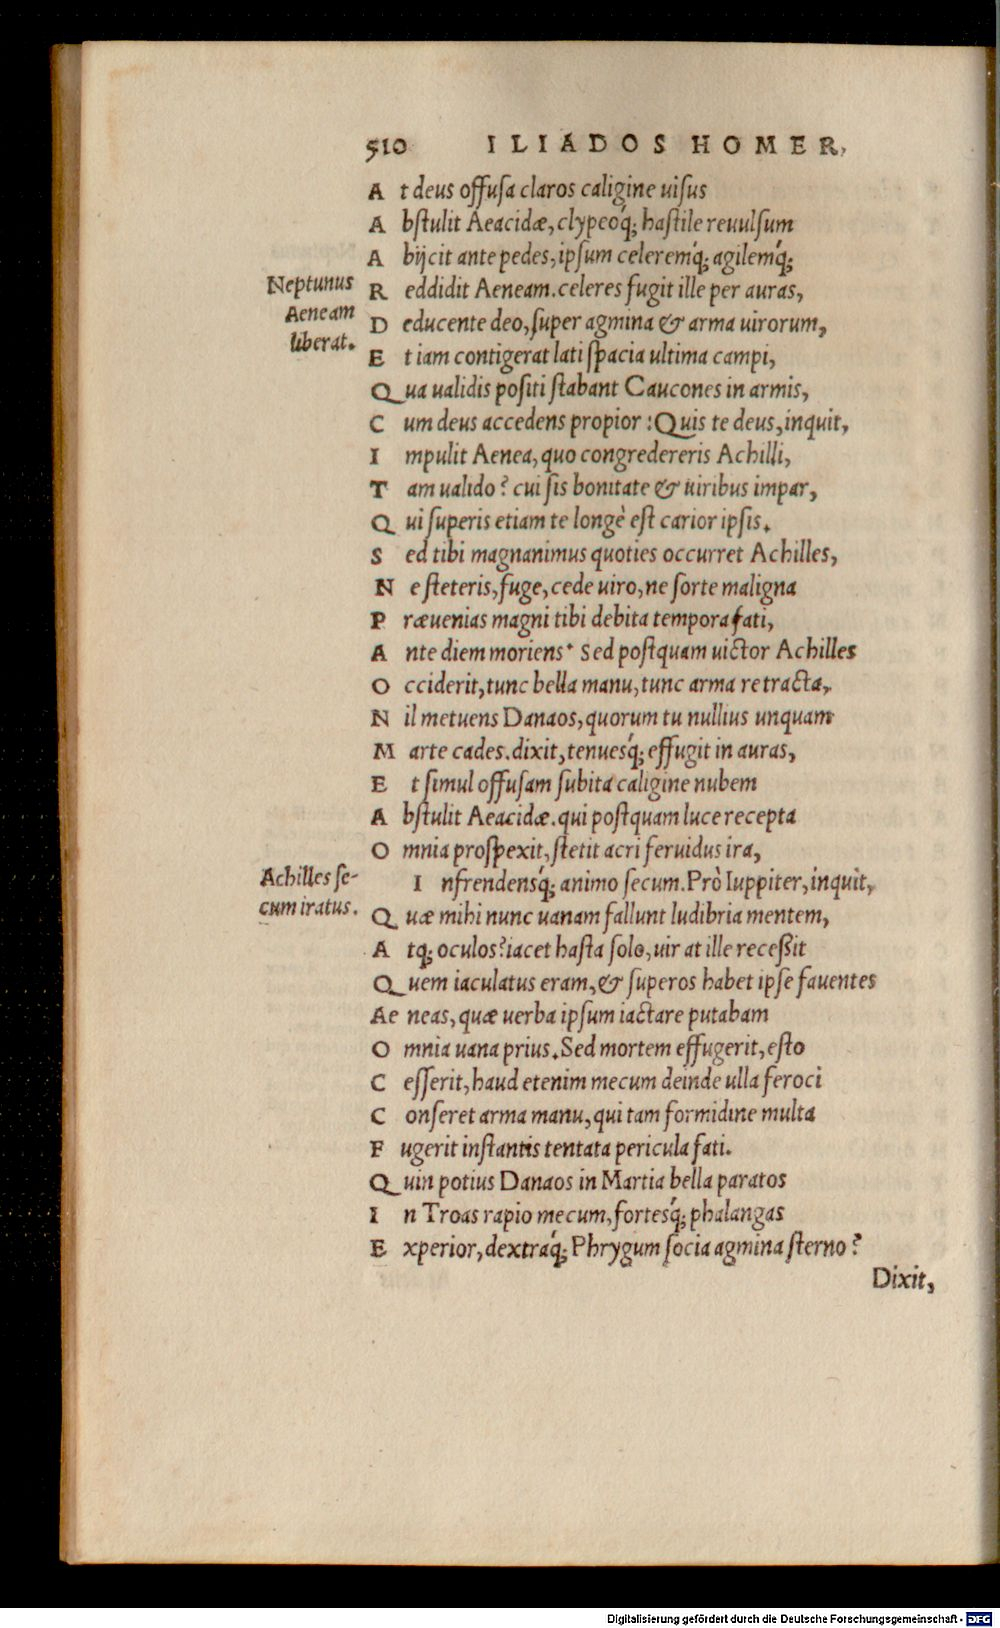 510 ILIADOS HOMER,
At deus offusa claros caligine uisus
Abstulit Aeacidæ, clypeoq́; hastile reuulsum
Abijcit ante pedes, ipsum celeremq́; agilemq́;
Neptunus
Aeneam
liberat.
Reddidit Aeneam. celeres fugit ille per auras,
Deducente deo, super agmina & arma uirorum,
Et iam contigerat lati spacia ultima campi,
Qua ualidis positi stabant Caucones in armis,
Cum deus accedens propior: Quis te deus, inquit,
Impulit Aenea, quo congredereris Achilli,
Tam ualido? cui sis bonitate & uiribus impar,
Qui superis etiam te longè est carior ipsis.
Sed tibi magnanimus quoties occurret Achilles,
Ne steteris, fuge, cede uiro, ne sorte maligna
Præuenias magni tibi debita tempora fati,
Ante diem moriens. Sed postquam uictor Achilles
Occiderit, tunc bella manu, tunc arma retracta,
Nil metuens Danaos, quorum tu nullius unquam
Marte cades. dixit, tenuesq́; effugit in auras,
Et simul offusam subita caligine nubem
Abstulit Aeacidæ. qui postquam luce recepta
Omnia prospexit, stetit acri feruidus ira,
Achilles se-
cum iratus.
Infrendensq́; animo secum. Prò Iuppiter, inquit,
Quæ mihi nunc uanam fallunt ludibria mentem,
Atq; oculos? iacet hasta solo, uir at ille receßit
Quem iaculatus eram, & superos habet ipse fauentes
Aeneas, quæ uerba ipsum iactare putabam
Omnia uana prius. Sed mortem effugerit, esto
Cesserit, haud etenim mecum deinde ulla feroci
Conseret arma manu, qui tam formidine multa
Fugerit instantis tentata pericula fati.
Quin potius Danaos in Martia bella paratos
In Troas rapio mecum, fortesq́; phalangas
Experior, dextraq́; Phrygum socia agmina sterno?
Dixit,
Digitalisierung gefördert durch die Deutsche Forschungsgemeinschaft - DFG